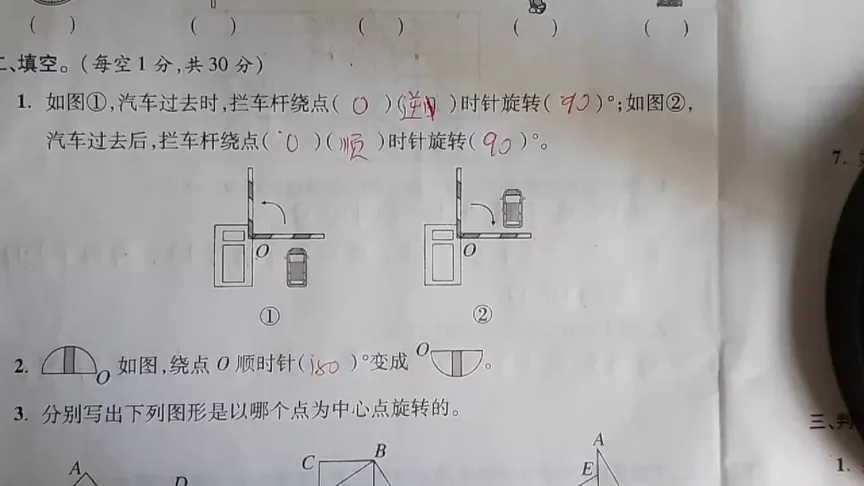 ( ) ( ) ( ) ( ) ( )
二、填空。(每空1分,共30分)
1. 如图①,汽车过去时,拦车杆绕点( O )(逆)时针旋转( 90 )°;如图②,
汽车过去后,拦车杆绕点( O )(顺)时针旋转( 90 )°。
O O
① ②
2. O 如图,绕点 O 顺时针(180)°变成 O 。
3. 分别写出下列图形是以哪个点为中心点旋转的。
A D C B A
E
7.
三、判
1.